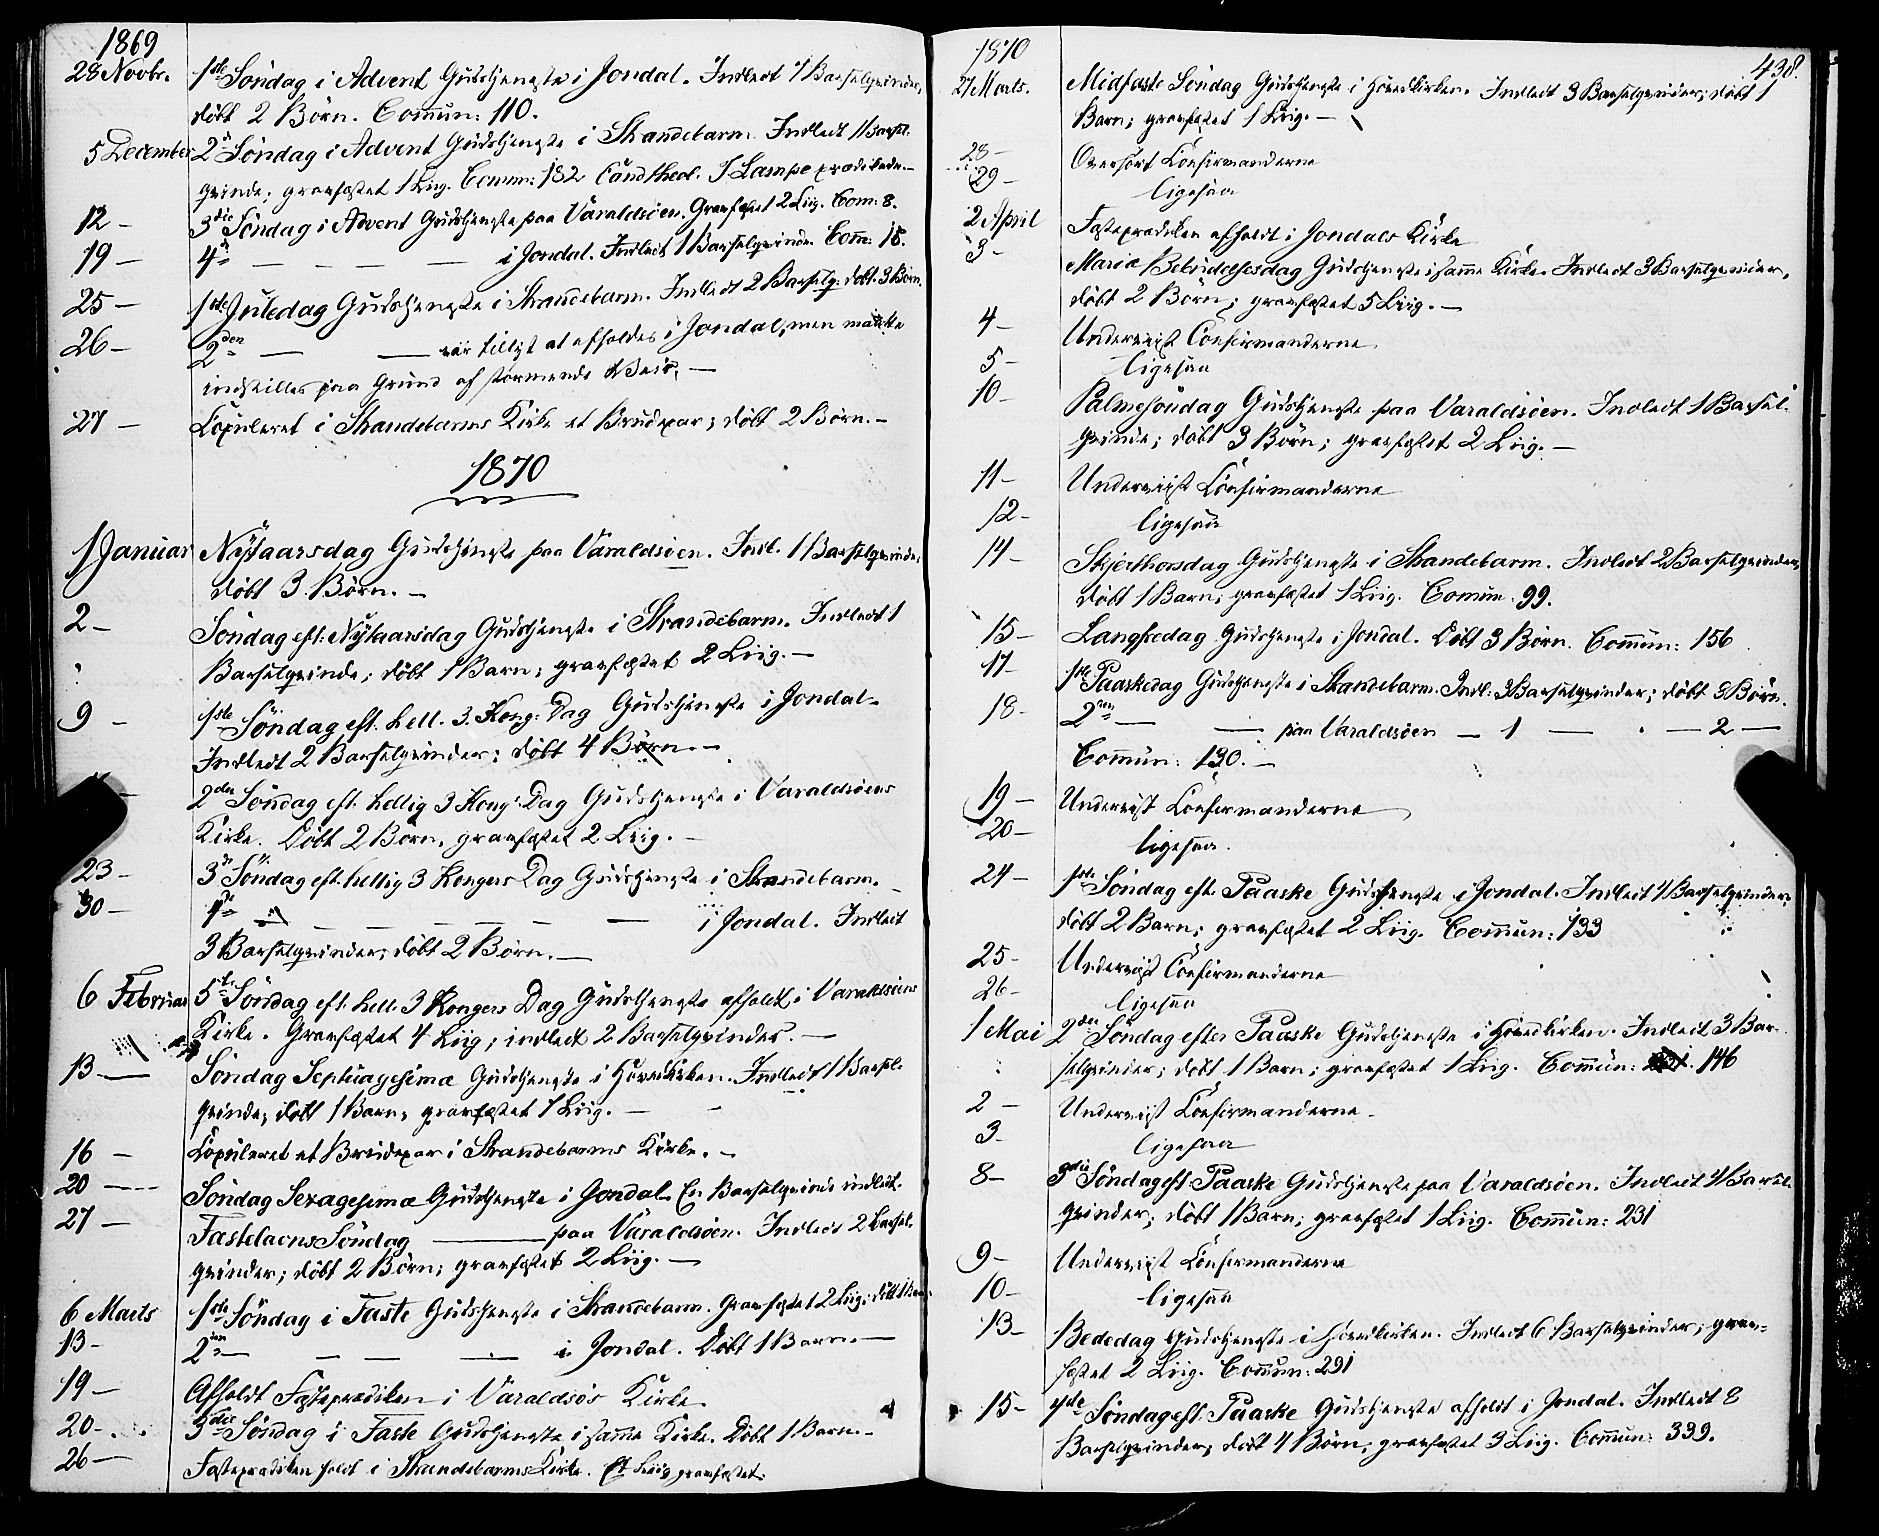 1869
28 Novbr. 1ste Söndag i Advent Gudstjeneste i Jondal. Indledt 1 Barselqvinde,
döbt 2 Börn. Commun: 110.
5 December 2d Söndag i Advent Gudstjeneste i Strandebarm. Indledt 1 Barsel-
qvinde; gravfæstet 1 Liig. Comm: 182 Cand theol. J Lampe prædikede.—
12 — 3die Söndag i Advent Gudstjeneste paa Varaldsöen. Gravfæstet 2 Liig. Com: 8.
19 — 4de — — — — i Jondal. Indledt 1 Barselqvinde Com: 18.
25 — 1ste Juledag Gudstjeneste i Strandebarm. Indledt 2 Barselq: döbt 3 Börn.
26 — 2den — — var tillyst at afholdes i Jondal, men maatte
indstilles paa Grund af stormende Veir. —
27 — Copuleret i Strandebarms Kirke et Brudepar; döbt 2 Börn. —
1870
1 Januar Nytaarsdag Gudstjeneste paa Varaldsöen. Indl. 1 Barselqvinde;
döbt 3 Börn. —
2 — Söndag eft. Nytaarsdag Gudstjeneste i Strandebarm. Indledt 1
Barselqvinde; döbt 1 Barn; gravfæstet 2 Liig. —
9 — 1ste Söndag eft. hell. 3. Kong: Dag Gudstjeneste i Jondal.
Indledt 2 Barselqvinder; döbt 4 Börn. —
— 2den Söndag eft. hellig 3 Kong: Dag Gudstjeneste i Varaldsöens
Kirke. Döbt 2 Börn, gravfæstet 2 Liig. —
23 — 3die Söndag eft. hellig 3 Kongers Dag Gudstjeneste i Strandebarm.
30 — 4de — — — — — i Jondal. Indledt
3 Barselqvinder; döbt 2 Börn. —
6 Februar 5te Söndag eft. hell. 3 Kongers Dag Gudstjeneste afholdt i Varaldsöens
Kirke. Gravfæstet 4 Liig; indledt 2 Barselqvinder. —
13 — Söndag Septuagesima Gudstjeneste i Hovedkirken. Indledt 1 Barsel-
qvinde; döbt 1 Barn; gravfæstet 1 Liig. —
16 — Copuleret et Brudepar i Strandebarms Kirke. —
20 — Söndag Sexagesima Gudstjeneste i Jondal. En Barselqvinde indledt.
27 — Fastelavns Söndag — paa Varaldsöen. Indledt 2 Barsel-
qvinder; döbt 2 Börn; gravfæstet 2 Liig. —
6 Marts 1ste Söndag i Faste Gudstjeneste i Strandebarm. Gravfæstet 2 Liig; döbt 1 Barn.
13 — 2den — — — i Jondal. Döbt 1 Barn. —
19 — Afholdt Fasteprædiken i Varaldsös Kirke.
20 — 3die Söndag i Faste Gudstjeneste i samme Kirke. Döbt 1 Barn. —
26 — Fasteprædiken holdt i Strandebarms Kirke. Et Liig gravfæstet.
1870
438.
27 Marts. Midfaste Söndag Gudstjeneste i Hovedkirken. Indledt 3 Barselqvinder; döbt 1
Barn; gravfæstet 1 Liig. —
28 — Overhört Confirmanderne
29 — ligesaa
2 April Fasteprædiken afholdt i Jondals Kirke
3 — Mariæ Bebudelsesdag Gudstjeneste i samme Kirke. Indledt 3 Barselqvinder,
döbt 2 Börn; gravfæstet 5 Liig. —
4 — Underviist Confirmanderne
5 — ligesaa
10 — Palmesöndag Gudstjeneste paa Varaldsöen. Indledt 1 Barsel-
qvinde; döbt 3 Börn; gravfæstet 2 Liig. —
11 — Underviist Confirmanderne
12 — ligesaa
14 — Skjerthorsdag Gudstjeneste i Strandebarm. Indledt 2 Barselqvinder,
döbt 1 Barn; gravfæstet 1 Liig. Comun: 99.
15 — Langfredag Gudstjeneste i Jondal. Döbt 3 Börn. Commun: 156
17 — 1ste Paaskedag Gudstjeneste i Strandebarm. Indl: 3 Barselqvinder; döbt 3 Börn.
18 — 2den — — paa Varaldsöen — 1 — — 2 —
Commun: 130. —
19 — Underviist Confirmanderne
20 — ligesaa.
24 — 1ste Söndag eft. Paaske Gudstjeneste i Jondal. Indledt 4 Barselqvinder;
döbt 2 Barn; gravfæstet 2 Liig. Commun: 133
25 — Underviist Confirmanderne
26 — ligesaa
1 Mai 2den Söndag efter Paaske Gudstjeneste i Hovedkirken. Indledt 3 Bar-
selqvinder; döbt 1 Barn; gravfæstet 1 Liig. Commun: 146
2 — Underviist Confirmanderne —
3 — ligesaa
8 — 3die Söndag eft. Paaske Gudstjeneste paa Varaldsöen. Indledt 4 Barsel-
qvinder; döbt 1 Barn; gravfæstet 1 Liig. Commun: 231
9 — Underviist Confirmanderne
10 — ligesaa
13 — Bededag Gudstjeneste i Hovedkirken. Indledt 6 Barselqvinder; grav-
fæstet 2 Liig. Commun: 291
15 — 4de Söndag eft. Paaske Gudstjeneste afholdt i Jondal. Indledt 8
Barselqvinder; döbt 4 Börn; gravfæstet 3 Liig. Commun: 339.